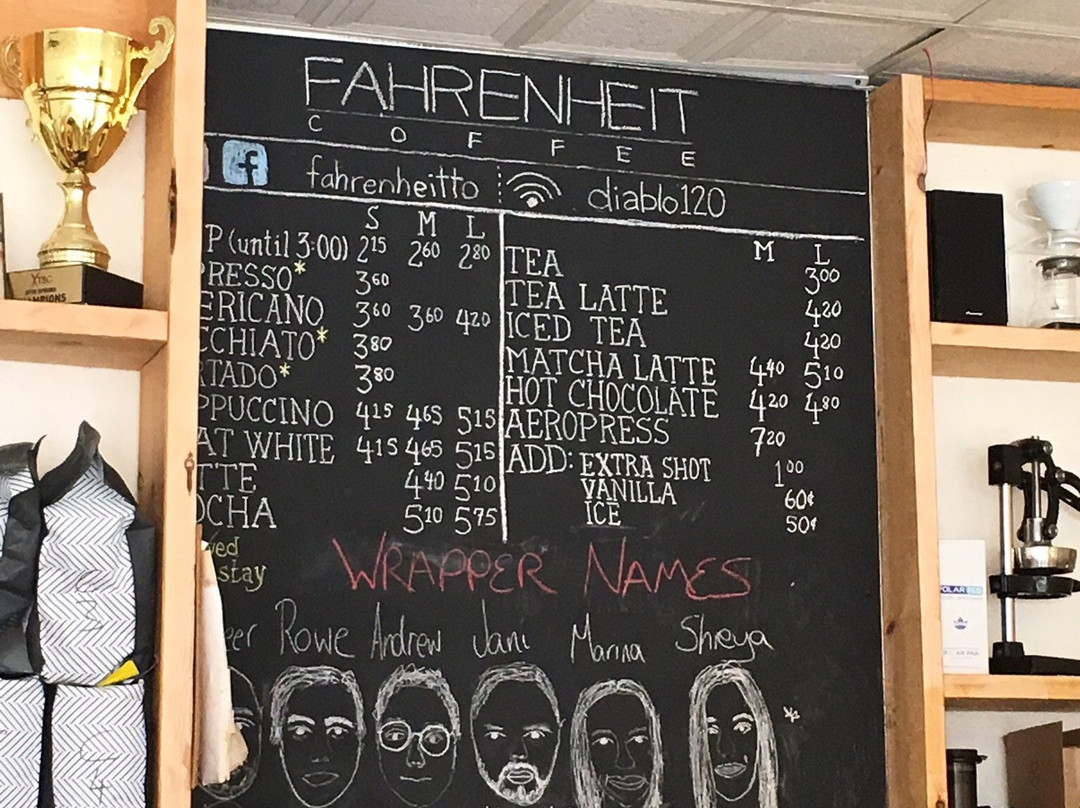 FAHRENHEIT
COFFEE
f fahrenheitto diablo120
S M L
P (until 3:00) 215 260 280
PRESSO* 360
ERICANO 360 360 420
CCHIATO* 380
RTADO* 380
PPUCCINO 415 465 515
AT WHITE 415 465 515
TTE 440 510
OCHA 510 575
wed
stay
M L
TEA 300
TEA LATTE 420
ICED TEA 420
MATCHA LATTE 440 510
HOT CHOCOLATE 420 480
AEROPRESS 720
ADD: EXTRA SHOT 100
VANILLA 60¢
ICE 50¢
WRAPPER NAMES
eer Rowe Andrew Jani Marina Shreya